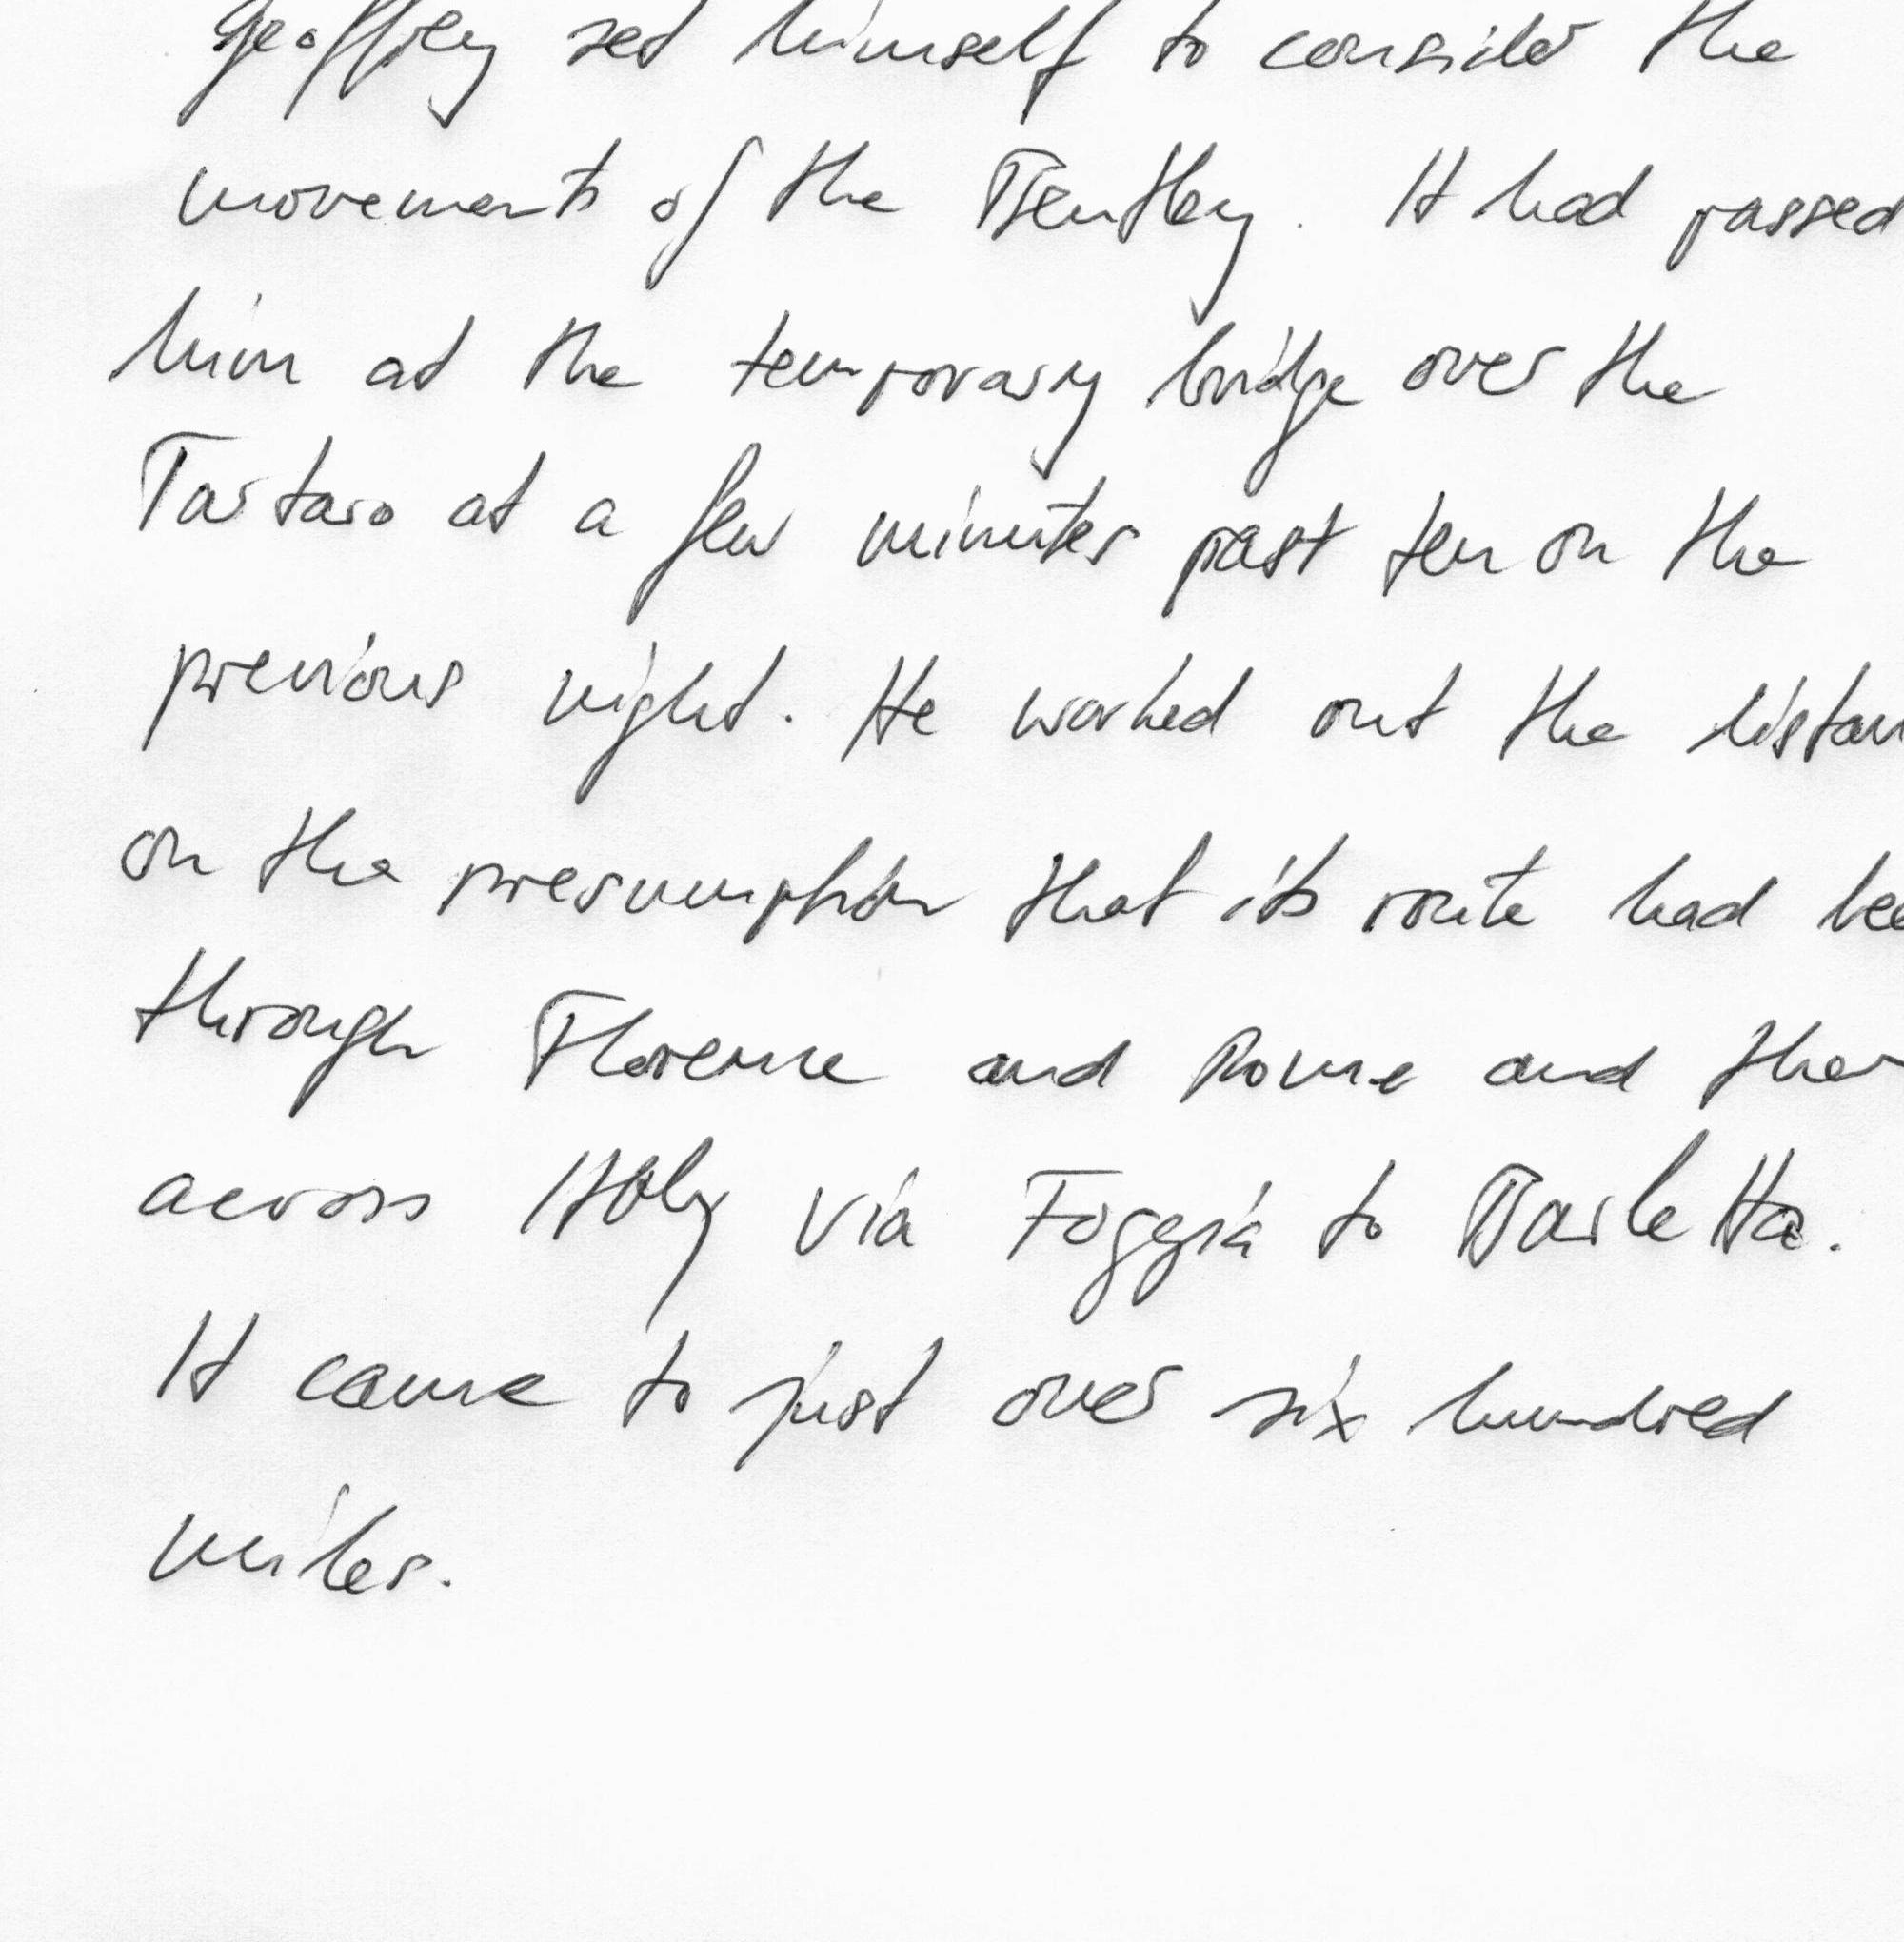 Geoffrey set himself to consider the
movements of the Bentley. It had passed
him at the temporary bridge over the
Tartaro at a few minutes past ten on the
previous night. He worked out the distan
on the presumption that its route had bee
through Florence and Rome and then
across Italy via Foggia to Barletta.
It came to just over six hundred
miles.